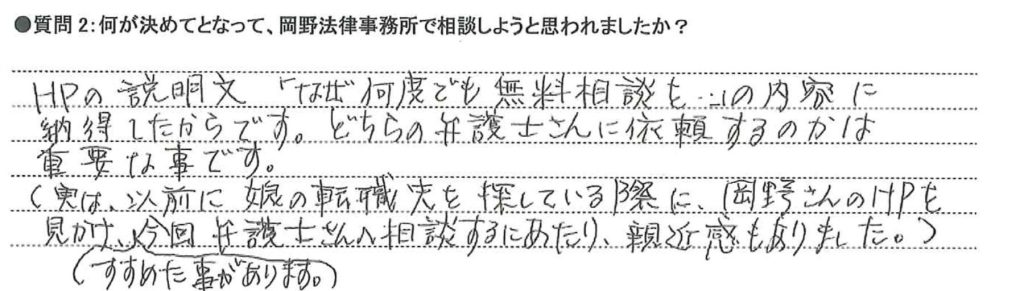 ●質問2:何が決めてとなって、岡野法律事務所で相談しようと思われましたか？
HPの説明文「なぜ何度でも無料相談を…」の内容に
納得したからです。どちらの弁護士さんに依頼するのかは
重要な事です。
(実は、以前に娘の転職先を探している際に、岡野さんのHPを
見かけ、今回弁護士さんへ相談するにあたり、親近感もありました。)
(すすめた事があります。)